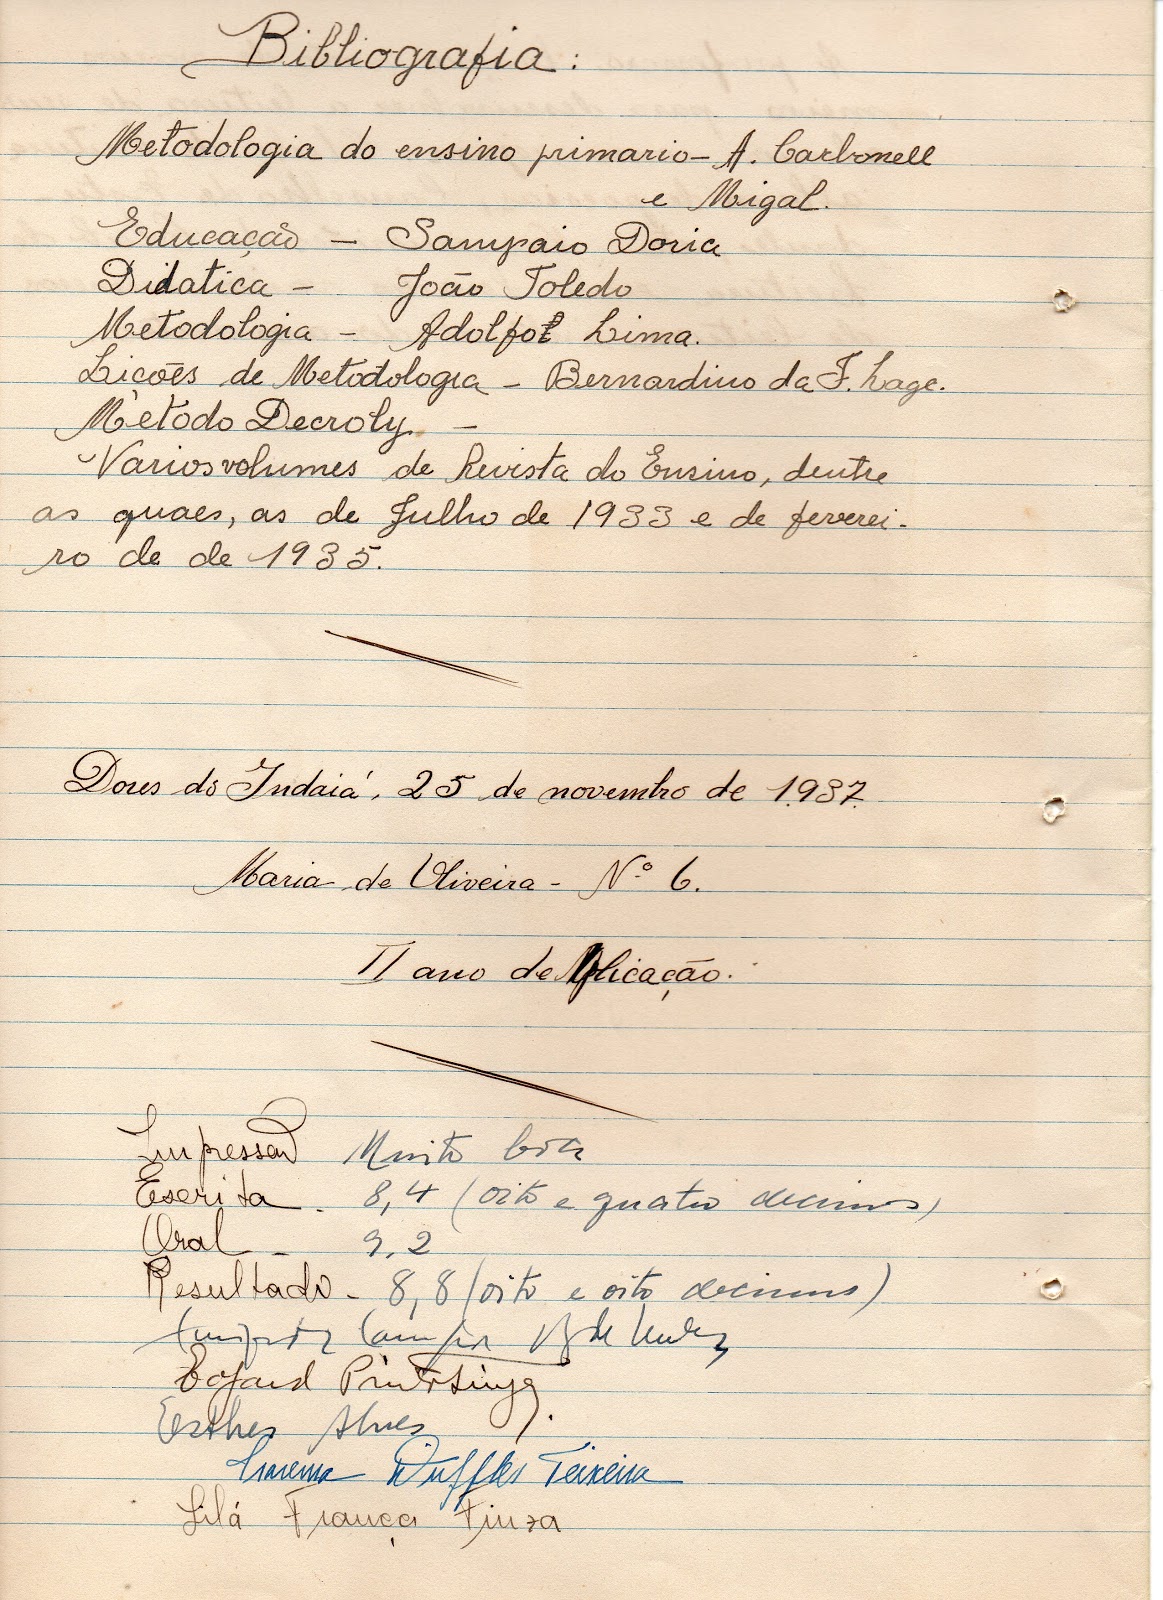 Bibliografia:
Metodologia do ensino primario - A. Carbonell
e Migal.
Educação - Sampaio Doria
Didatica - João Toledo
Metodologia - Adolfo Lima.
Lições de Metodologia - Bernardino da F. Lage.
Metodo Decroly -
Varios volumes de Revista do Ensino, dentre
as quaes, as de Julho de 1933 e de feverei-
ro de de 1935.
Dores do Indaiá, 25 de novembro de 1937
Maria de Oliveira - Nº 6.
II ano de Aplicação.
Impressão Muito boa
Escrita - 8,4 (oito e quatro decimos)
Oral - 9,2
Resultado - 8,8 (oito e oito decimos)
Esther Alves
Ruffles Teixeira
Lilá França